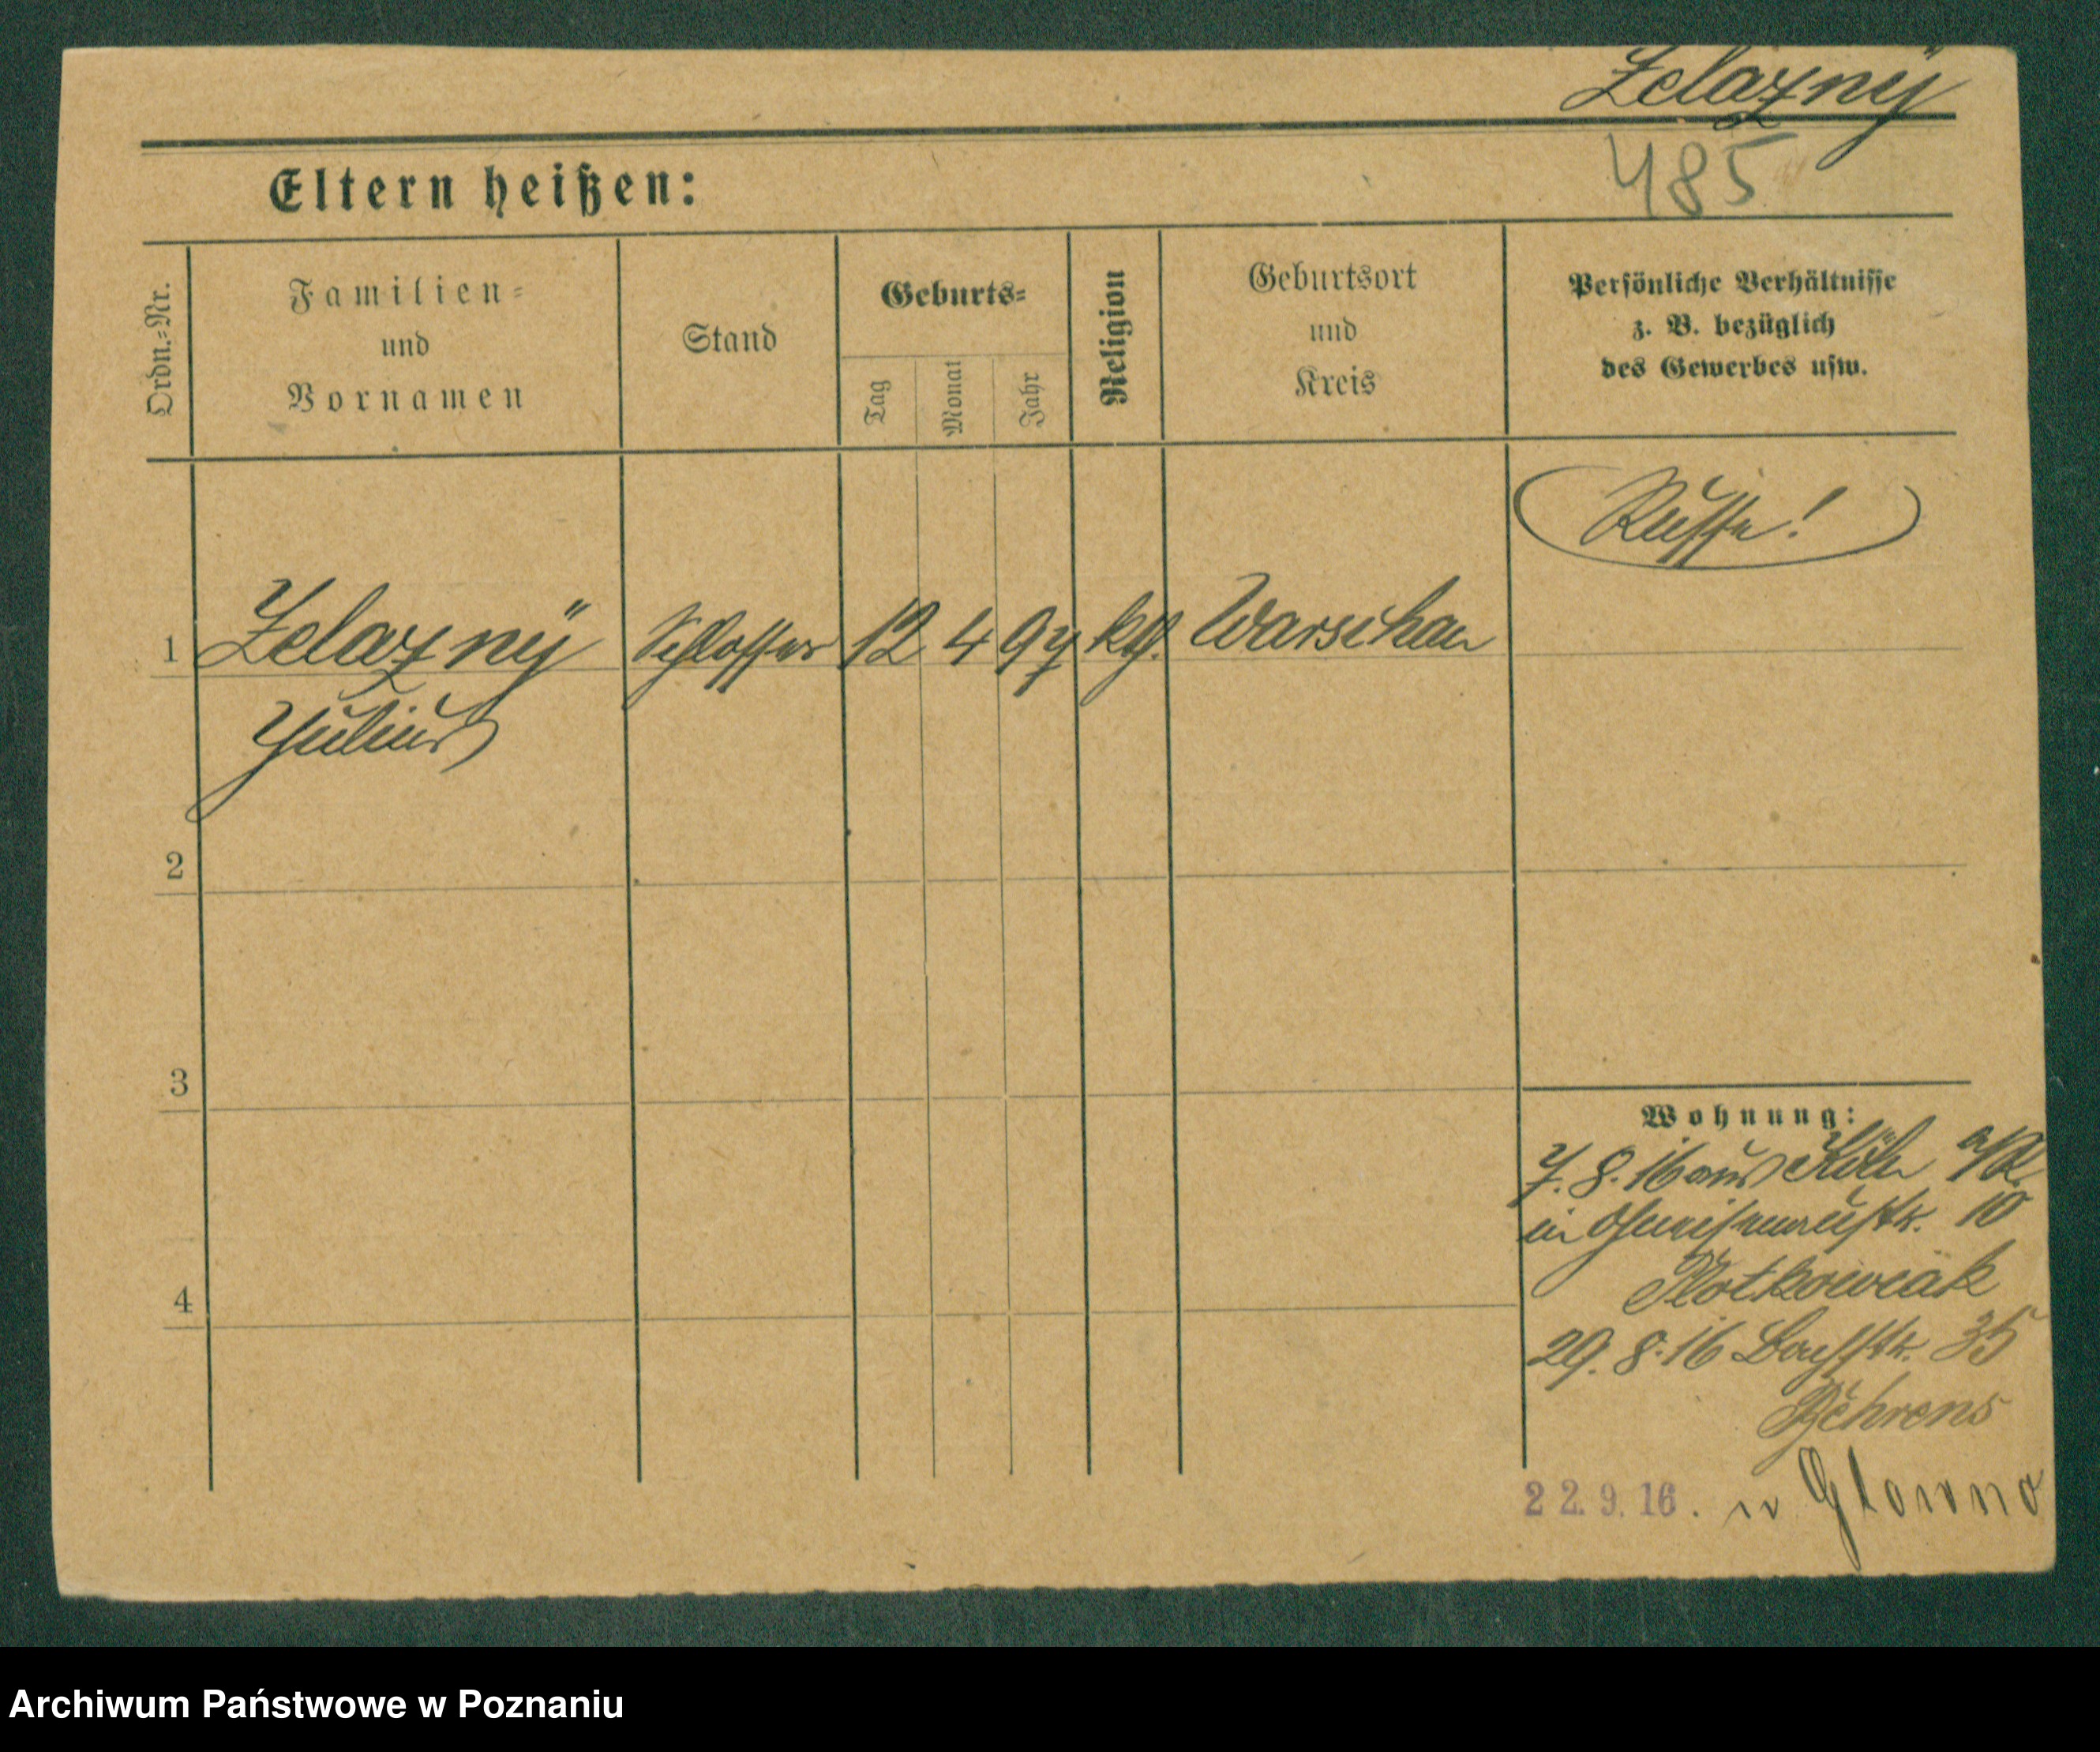 Zelazny
485
Eltern heißen:
Ordn.-Nr.
Familien-
und
Vornamen
Stand
Geburts-
Tag
Monat
Jahr
Religion
Geburtsort
und
Kreis
Persönliche Verhältnisse
z. B. bezüglich
des Gewerbes usw.
Russe!
1 Zelazny Schlosser 12 4 97 kth. Warschau
Julius
2
3
4
Wohnung:
7. 8. 16 aus Köln a/R.
in Gneisenaustr. 10
Plotkowiak
29. 8. 16 Bachstr. 35
Behrens
22.9.16. n Glowno
Archiwum Państwowe w Poznaniu